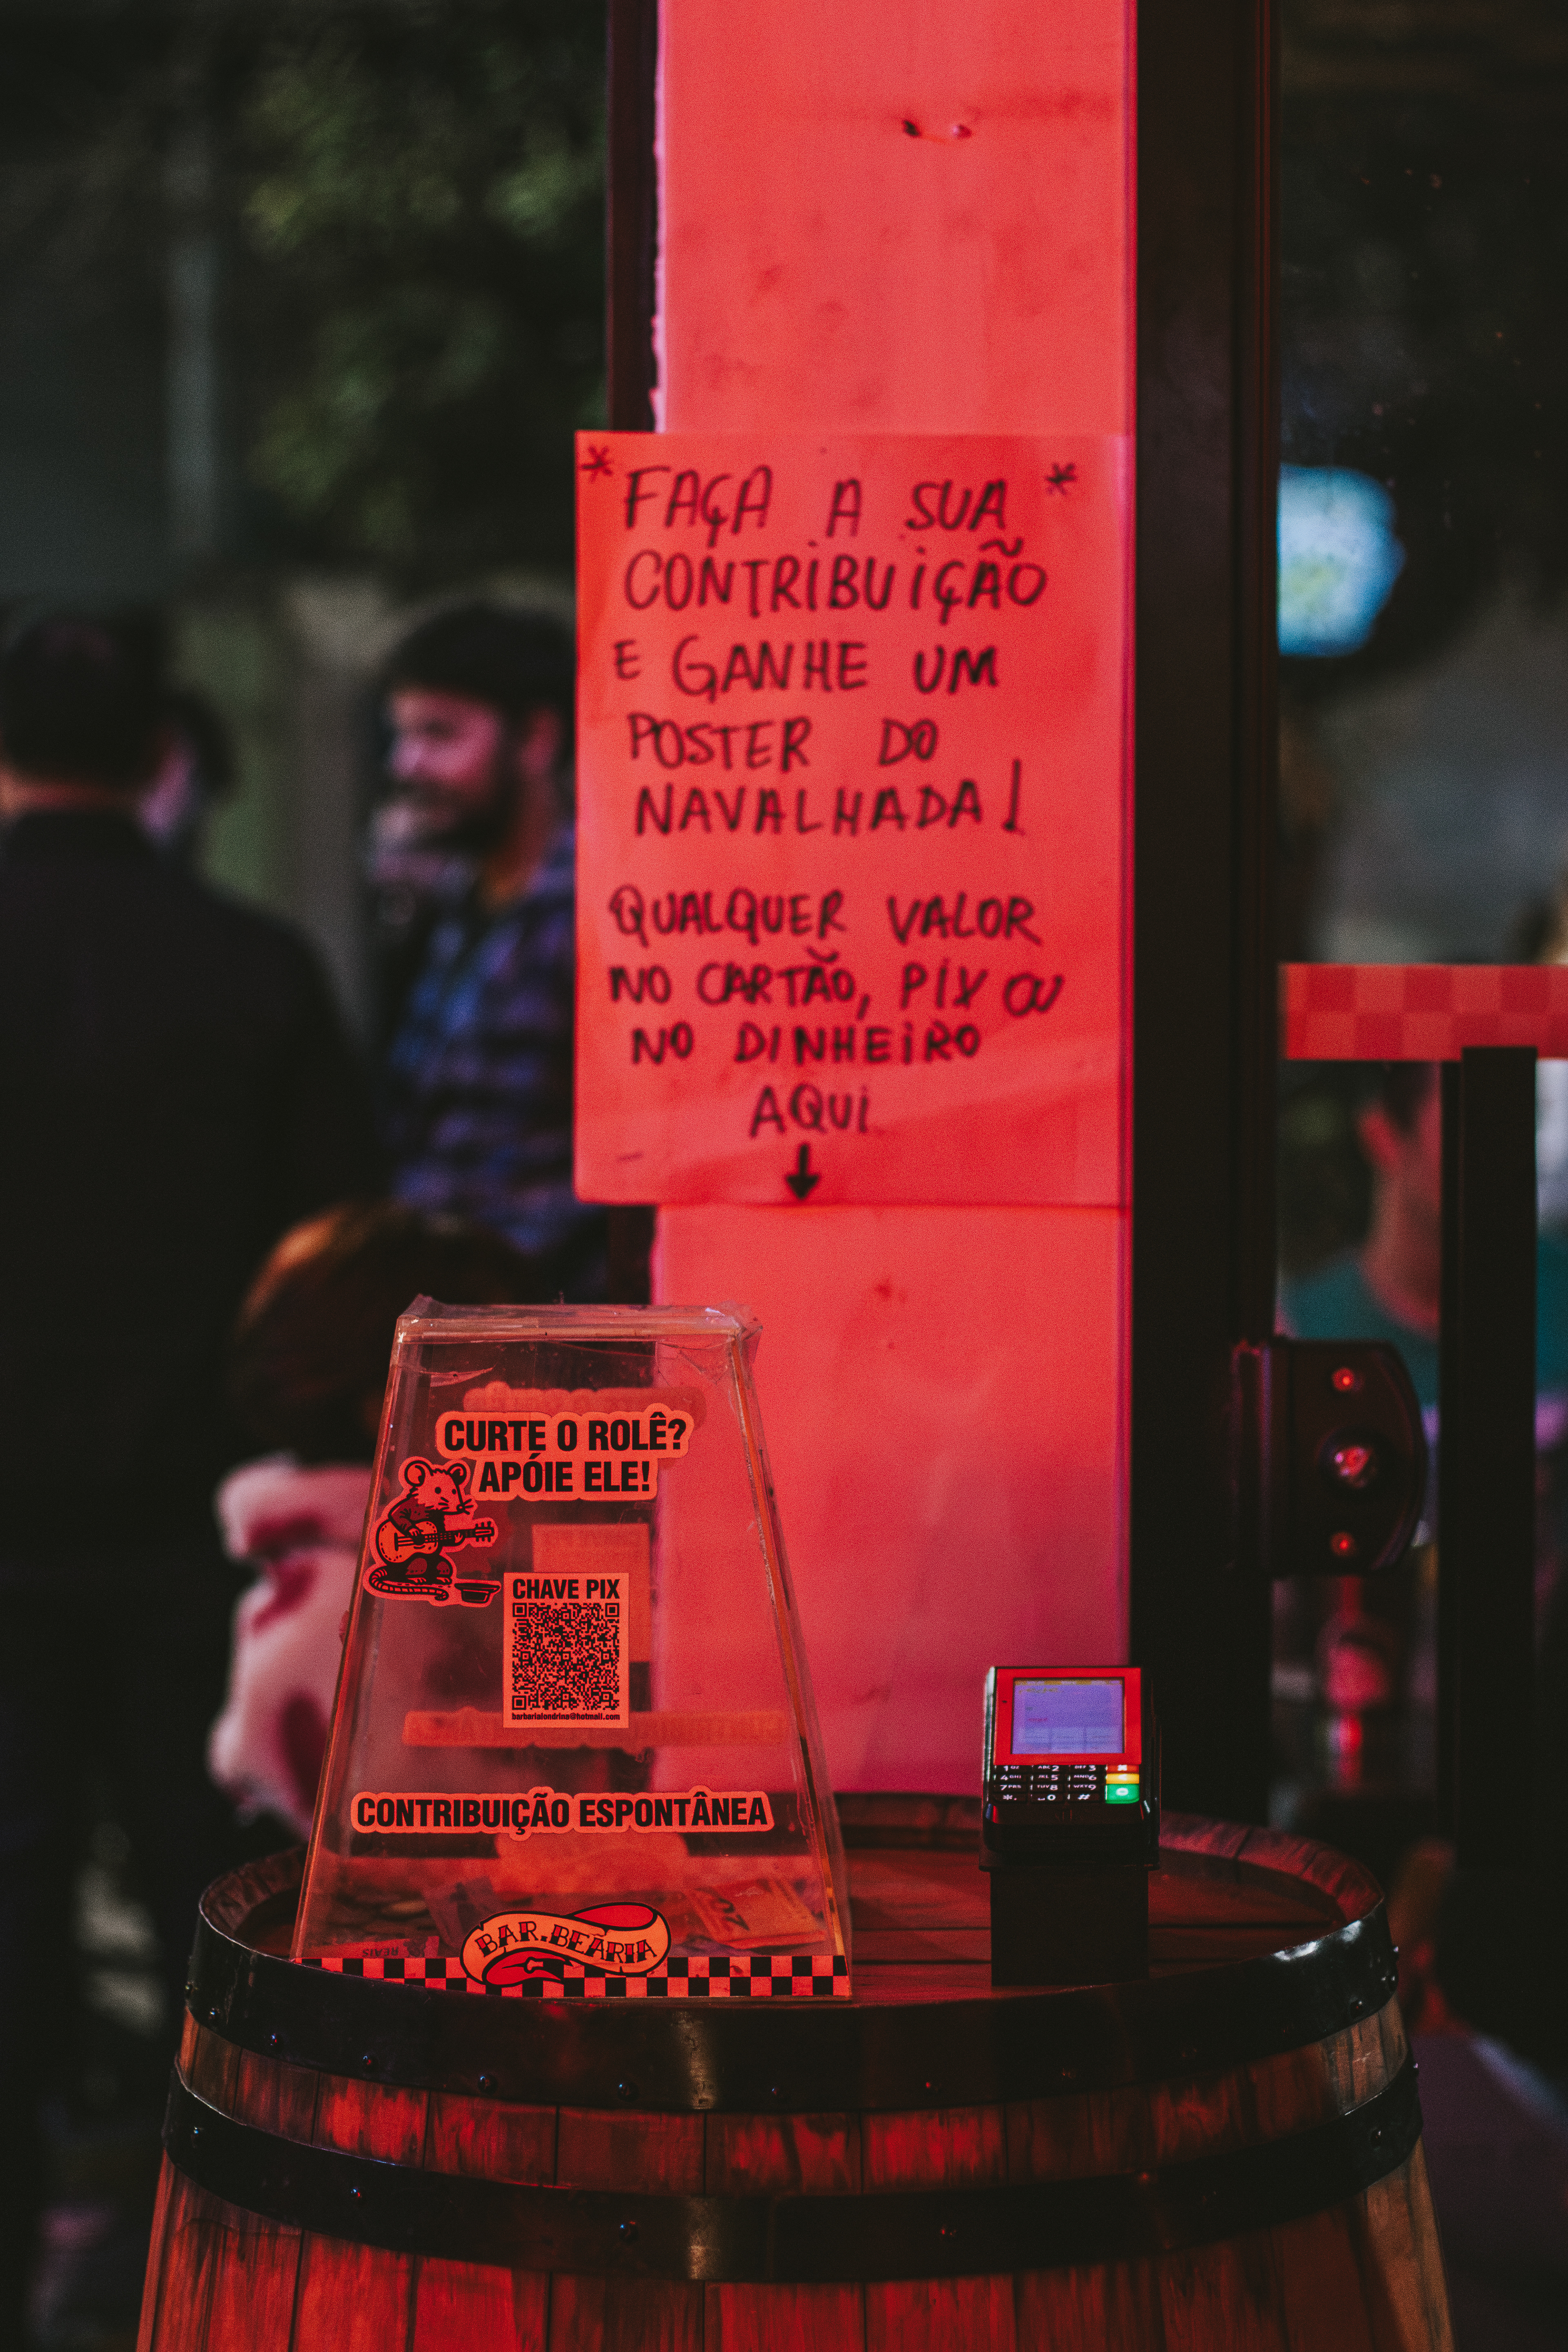 * FAÇA A SUA *
CONTRiBUiÇÃO
E GANHE UM
POSTER DO
NAVALHADA!
QUALQUER VALOR
NO CARTÃO, PiX OU
NO DiNHEiRO
AQUi
CURTE O ROLÊ?
APÓIE ELE!
CHAVE PIX
barbarialondrina@hotmail.com
CONTRIBUIÇÃO ESPONTÂNEA
REAIS
20
BAR.BEARIA